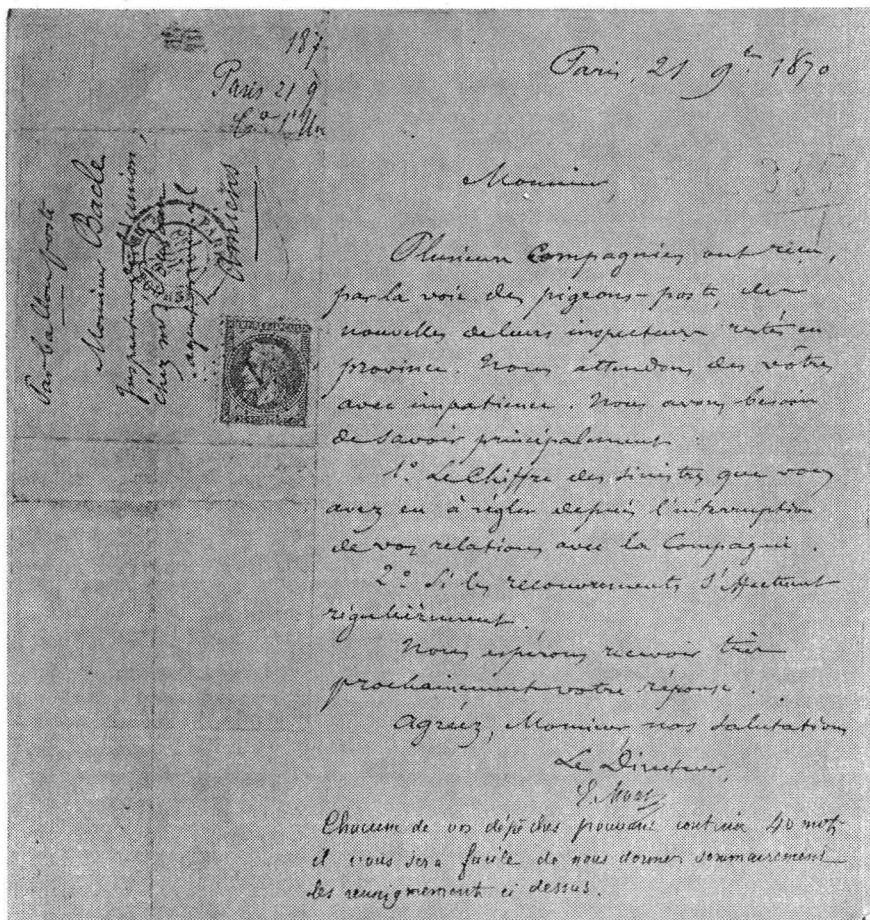 187
Paris 21 9
Cie l'Un
Par ballon poste
Monsieur Bacle
Inspecteur de l'Union,
chez Mr
agent principal
Amiens
Paris, 21 9bre 1870
Monsieur,
Plusieurs Compagnies ont reçu,
par la voie des pigeons-poste, des
nouvelles de leurs inspecteurs restés en
province. Nous attendons des vôtres
avec impatience. Nous avons besoin
de savoir principalement :
1º. Le Chiffre des sinistres que vous
avez eu à régler depuis l'interruption
de vos relations avec la Compagnie.
2º. Si les recouvrements s'effectuent
régulièrement.
Nous espérons recevoir très
prochainement votre réponse.
Agréez, Monsieur, nos salutations
Le Directeur,
Chacune de vos dépêches pouvant contenir 40 mots
il vous sera facile de nous donner sommairement
les renseignements ci dessus.